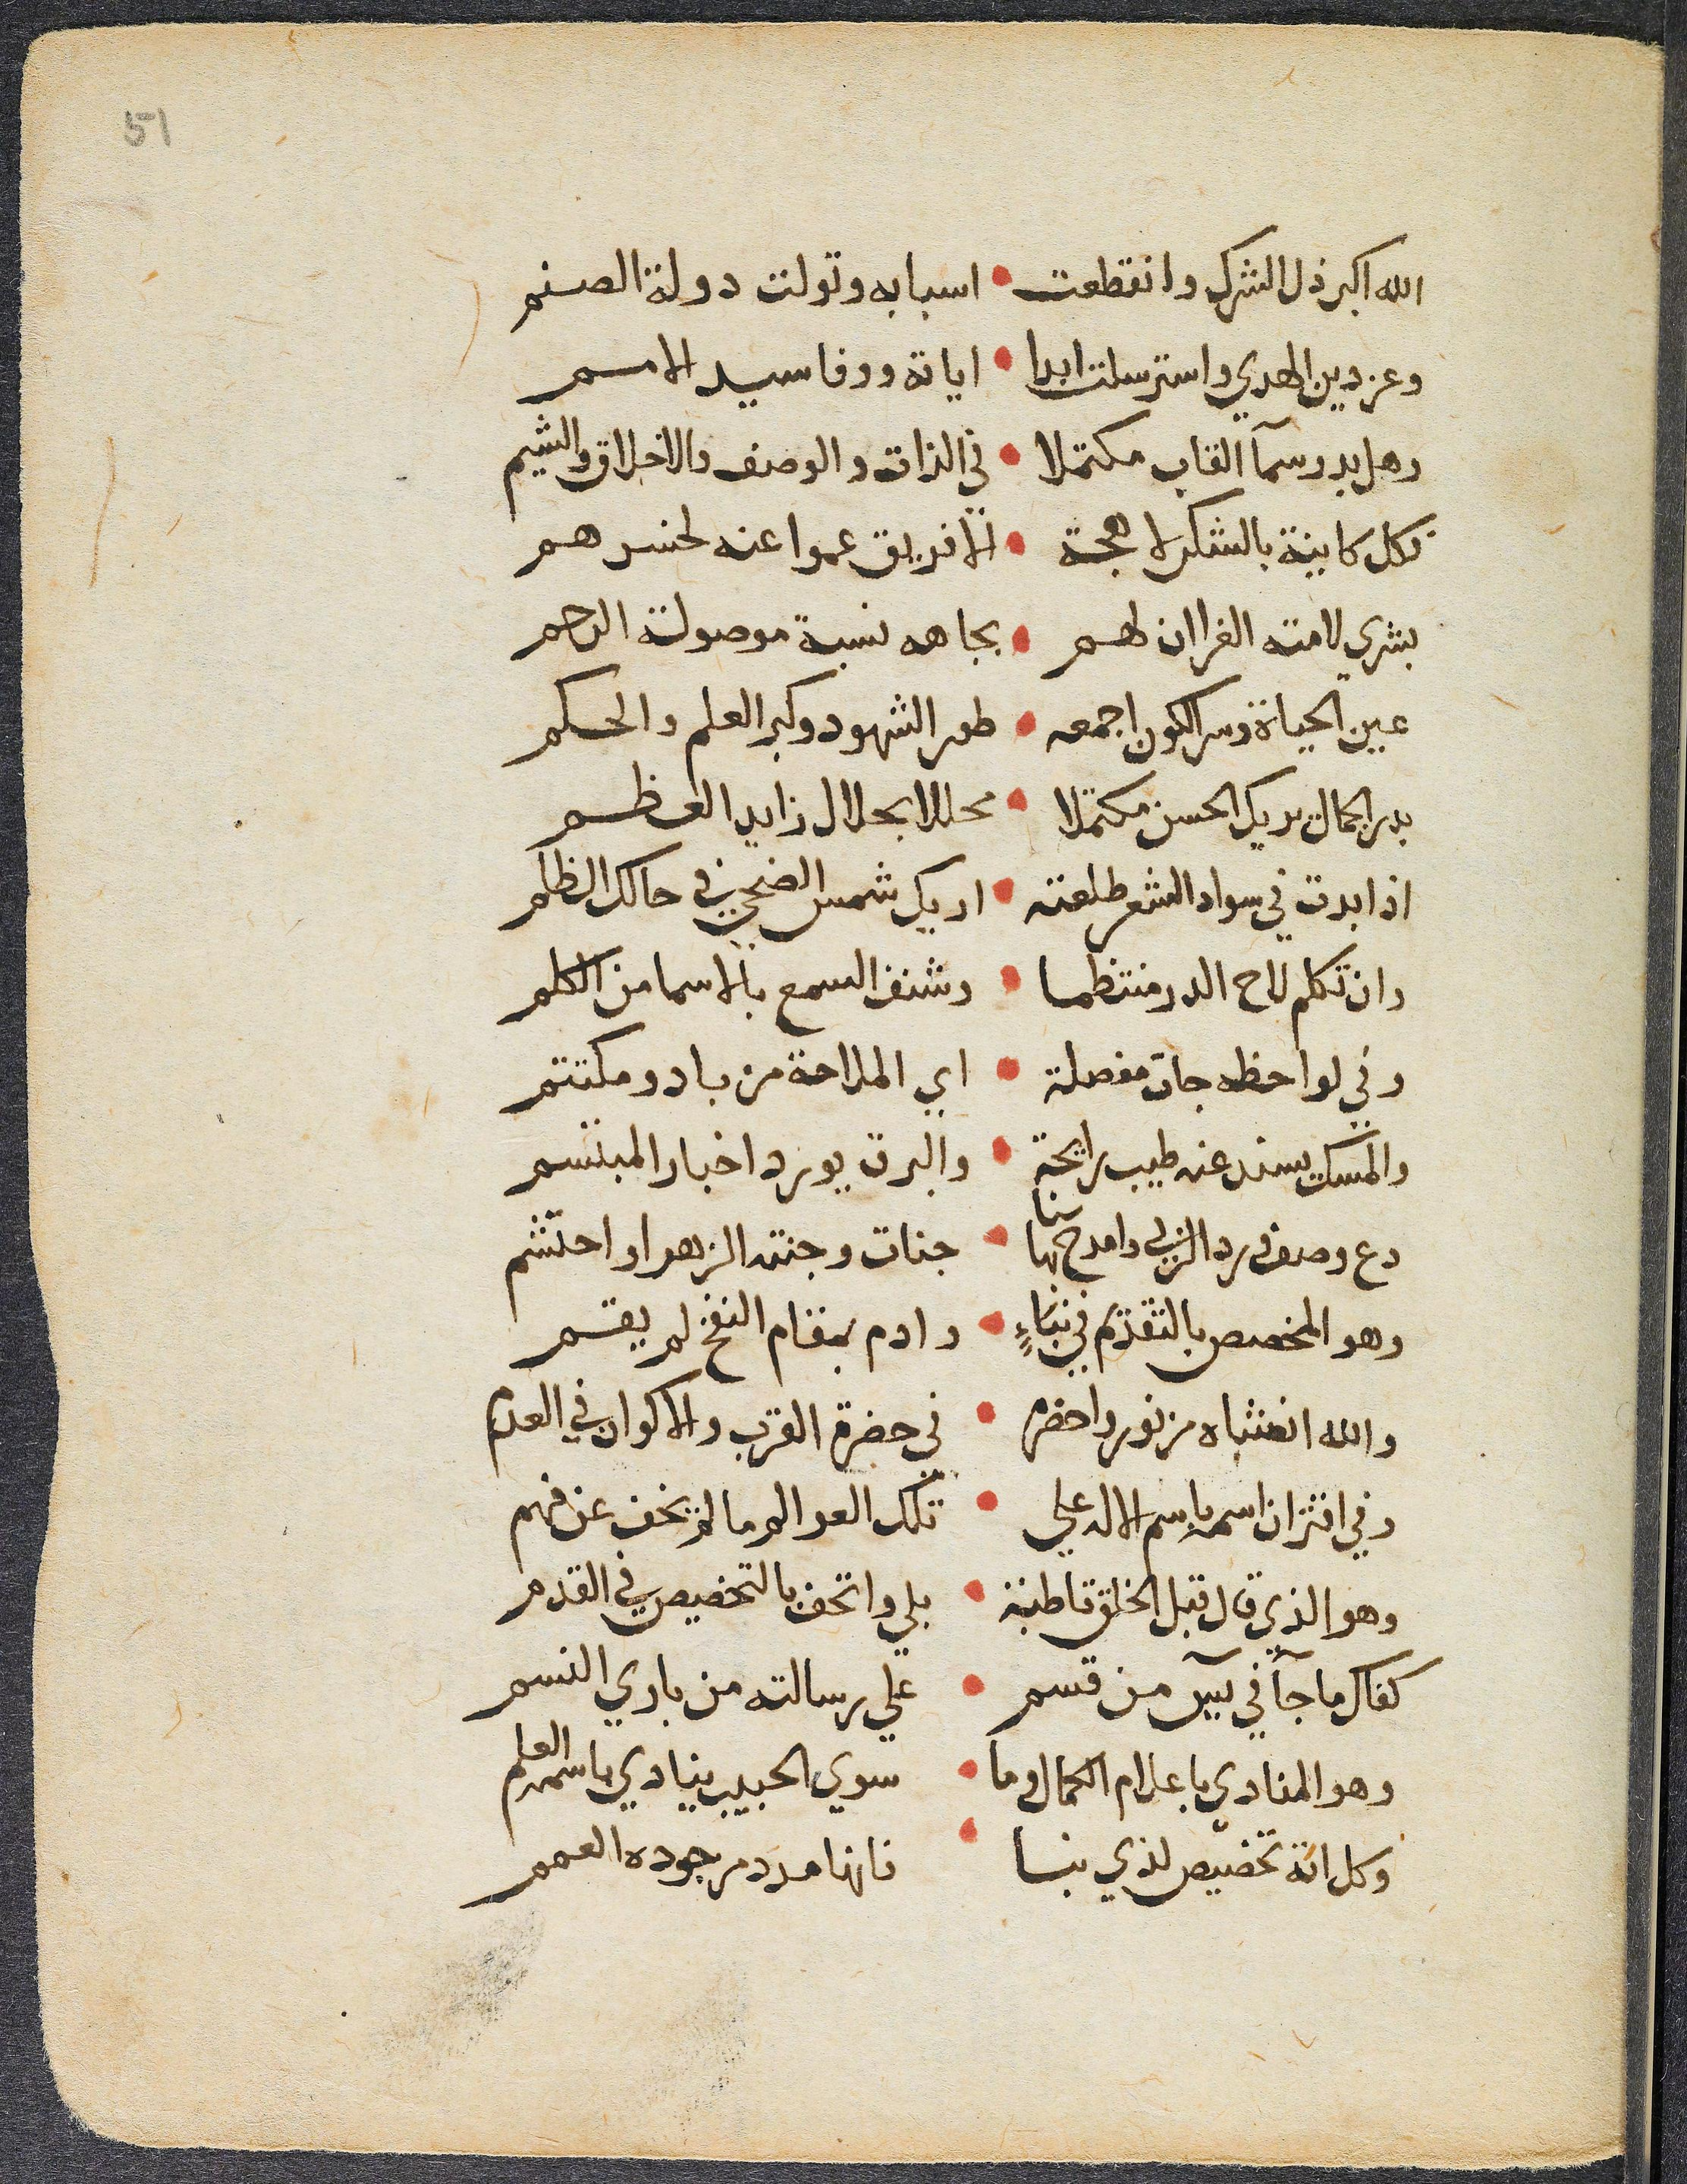 51
الله اكبر ذل الشرك وانقطعت • اسبابه وتولت دولة الصنم
وعز دين الهدي واسترسلت ابدا • اياته ووفا سيد الامم
وهل بدر سمآ القاب مكتملا • في الذات والوصف والاخلاق والشيم
فكل كاينة بالشكر لاهجة • الا فريق عموا عنه لخسرهم
بشري لامته الغرا ان لهم • بجاهه نسبة موصولة الرحم
عين الحياة وسر الكون اجمعه • طور الشهود وكبر العلم والحكم
بدر الجمال يريك الحسن مكتملا • مجللا بجلال زايد العظم
اذا بدت في سواد الشعر طلعته • اريك شمس الضحي في حالك الظلم
وان تكلم لاح الدر منتظما • وشنف السمع بالاسما من الكلم
وفي لواحظه جات مفصلة • اي الملاحة من باد ومكتتم
والمسك يسند عن طيب رايحة • والبرق يورد اخبار المبتسم
دع وصف ورد الربي وامدح بها سنا • جنات وجنته الزهرا واحتشم
وهو المخصص بالتقدم في نبَاءٍ • وادم بمقام النفخ لم يقم
والله انشاه من نور واحضره • في حضرة القرب والاكوان في العدم
وفي اقتران اسمه باسم الاله علي • تلك العوالم ما لم يخف عن فهم
وهو الذي قال قبل الخلق قاطبة • بلي واتحف بالتخصيص في القدم
كفاك ما جآ في يسٓ من قسم • علي رسالته من باري النسم
وهو المنادي باعلام الكمال وما • سوي الحبيب ينادي باسمه العلم
وكل اية تخصيص لذي نبا • فانها مدد من جوده العمم